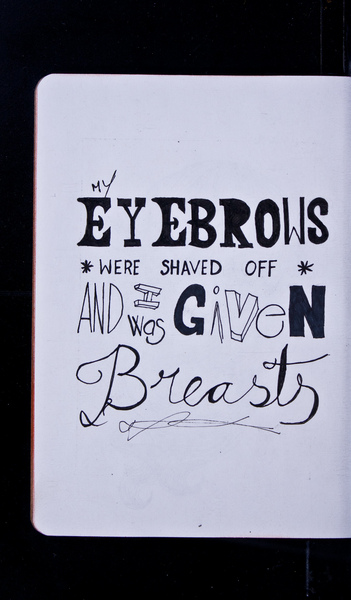 My
EYEBROWS
* WERE SHAVED OFF *
AND I was GiVeN
Breasts